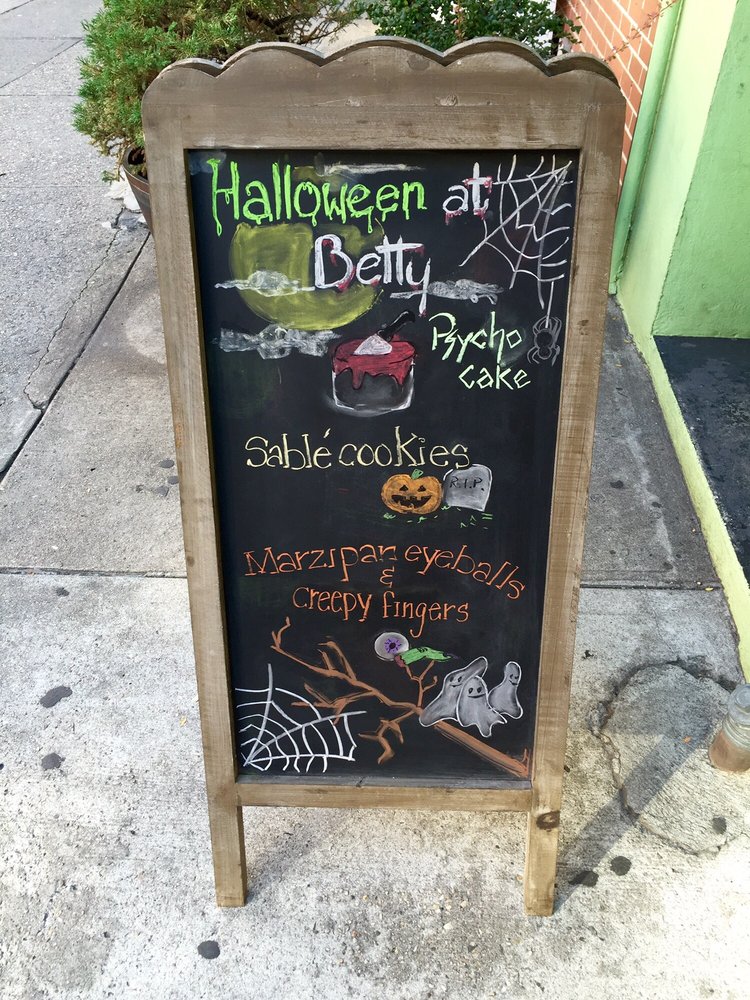 Halloween at
Betty
Psycho
cake
Sablé cookies
R.I.P.
Marzipan eyeballs
&
creepy fingers